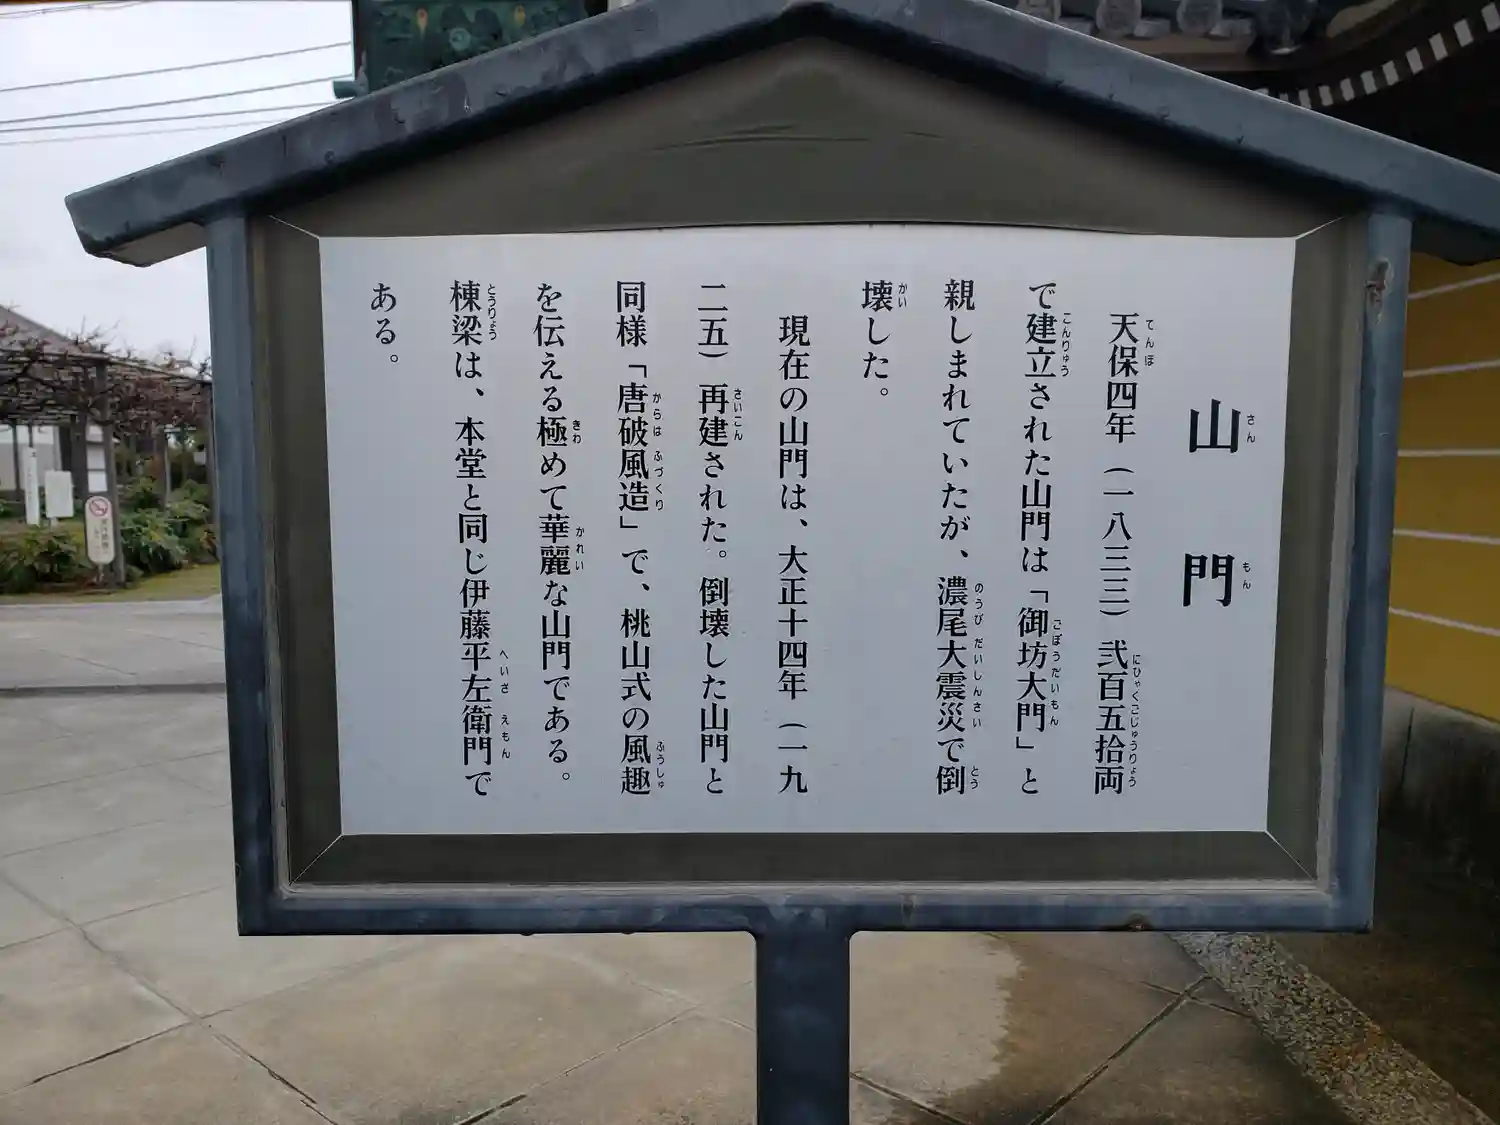 山門
天保四年（一八三三）弐百五拾両
で建立された山門は「御坊大門」と
親しまれていたが、濃尾大震災で倒
壊した。
現在の山門は、大正十四年（一九
二五）再建された。倒壊した山門と
同様「唐破風造」で、桃山式の風趣
を伝える極めて華麗な山門である。
棟梁は、本堂と同じ伊藤平左衛門で
ある。